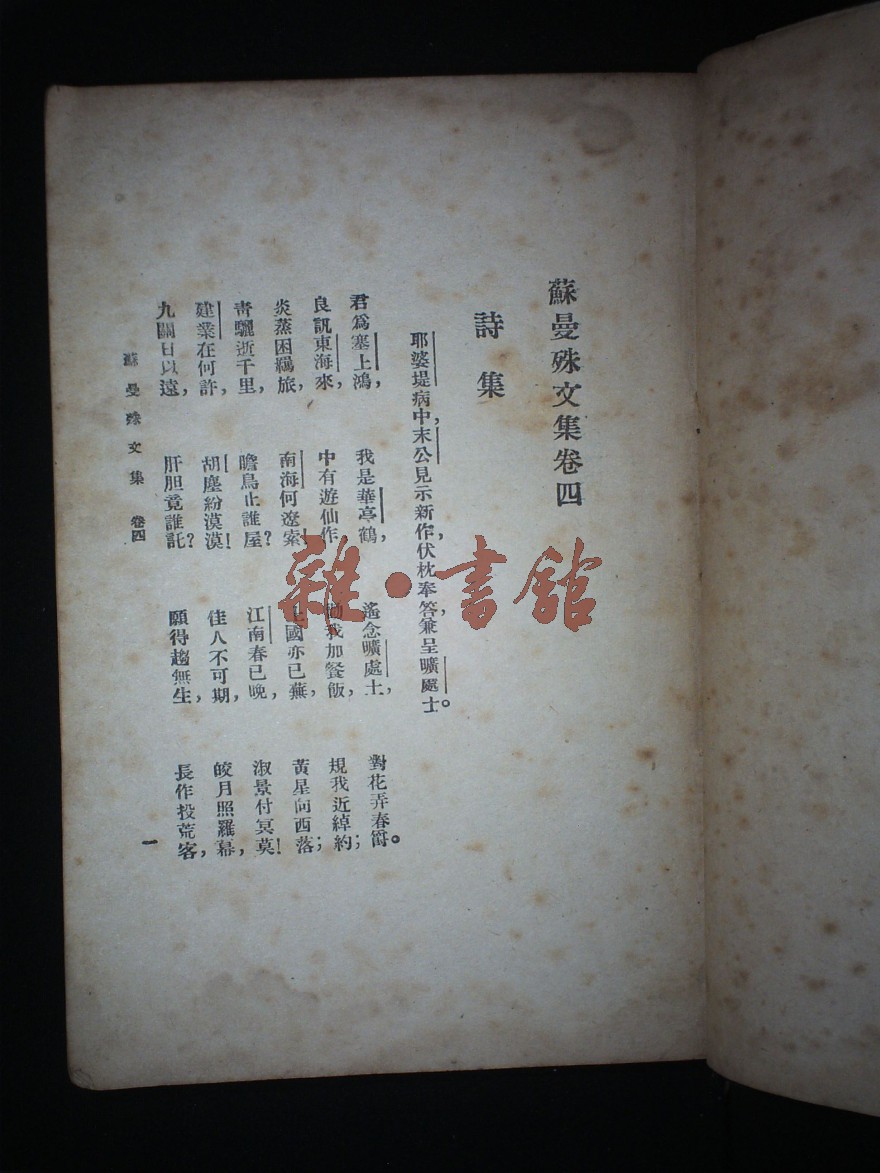 蘇曼殊文集卷四
詩集
耶婆堤病中,末公見示新作,伏枕奉答,兼呈曠處士。
君爲塞上鴻,我是華亭鶴,遙念曠處士,對花弄春爵。
良訊東海來,中有遊仙作我加餐飯,規我近綽約;
炎蒸困羈旅,南海何遼索!上國亦已蕪,黃星向西落;
青驪逝千里,瞻烏止誰屋?江南春已晚,淑景付冥莫!
建業在何許,胡塵紛漠漠!佳人不可期,皎月照羅幕,
九關日以遠,肝胆竟誰託?願得趨無生,長作投荒客,
蘇曼殊文集 卷四
一
雜·書館